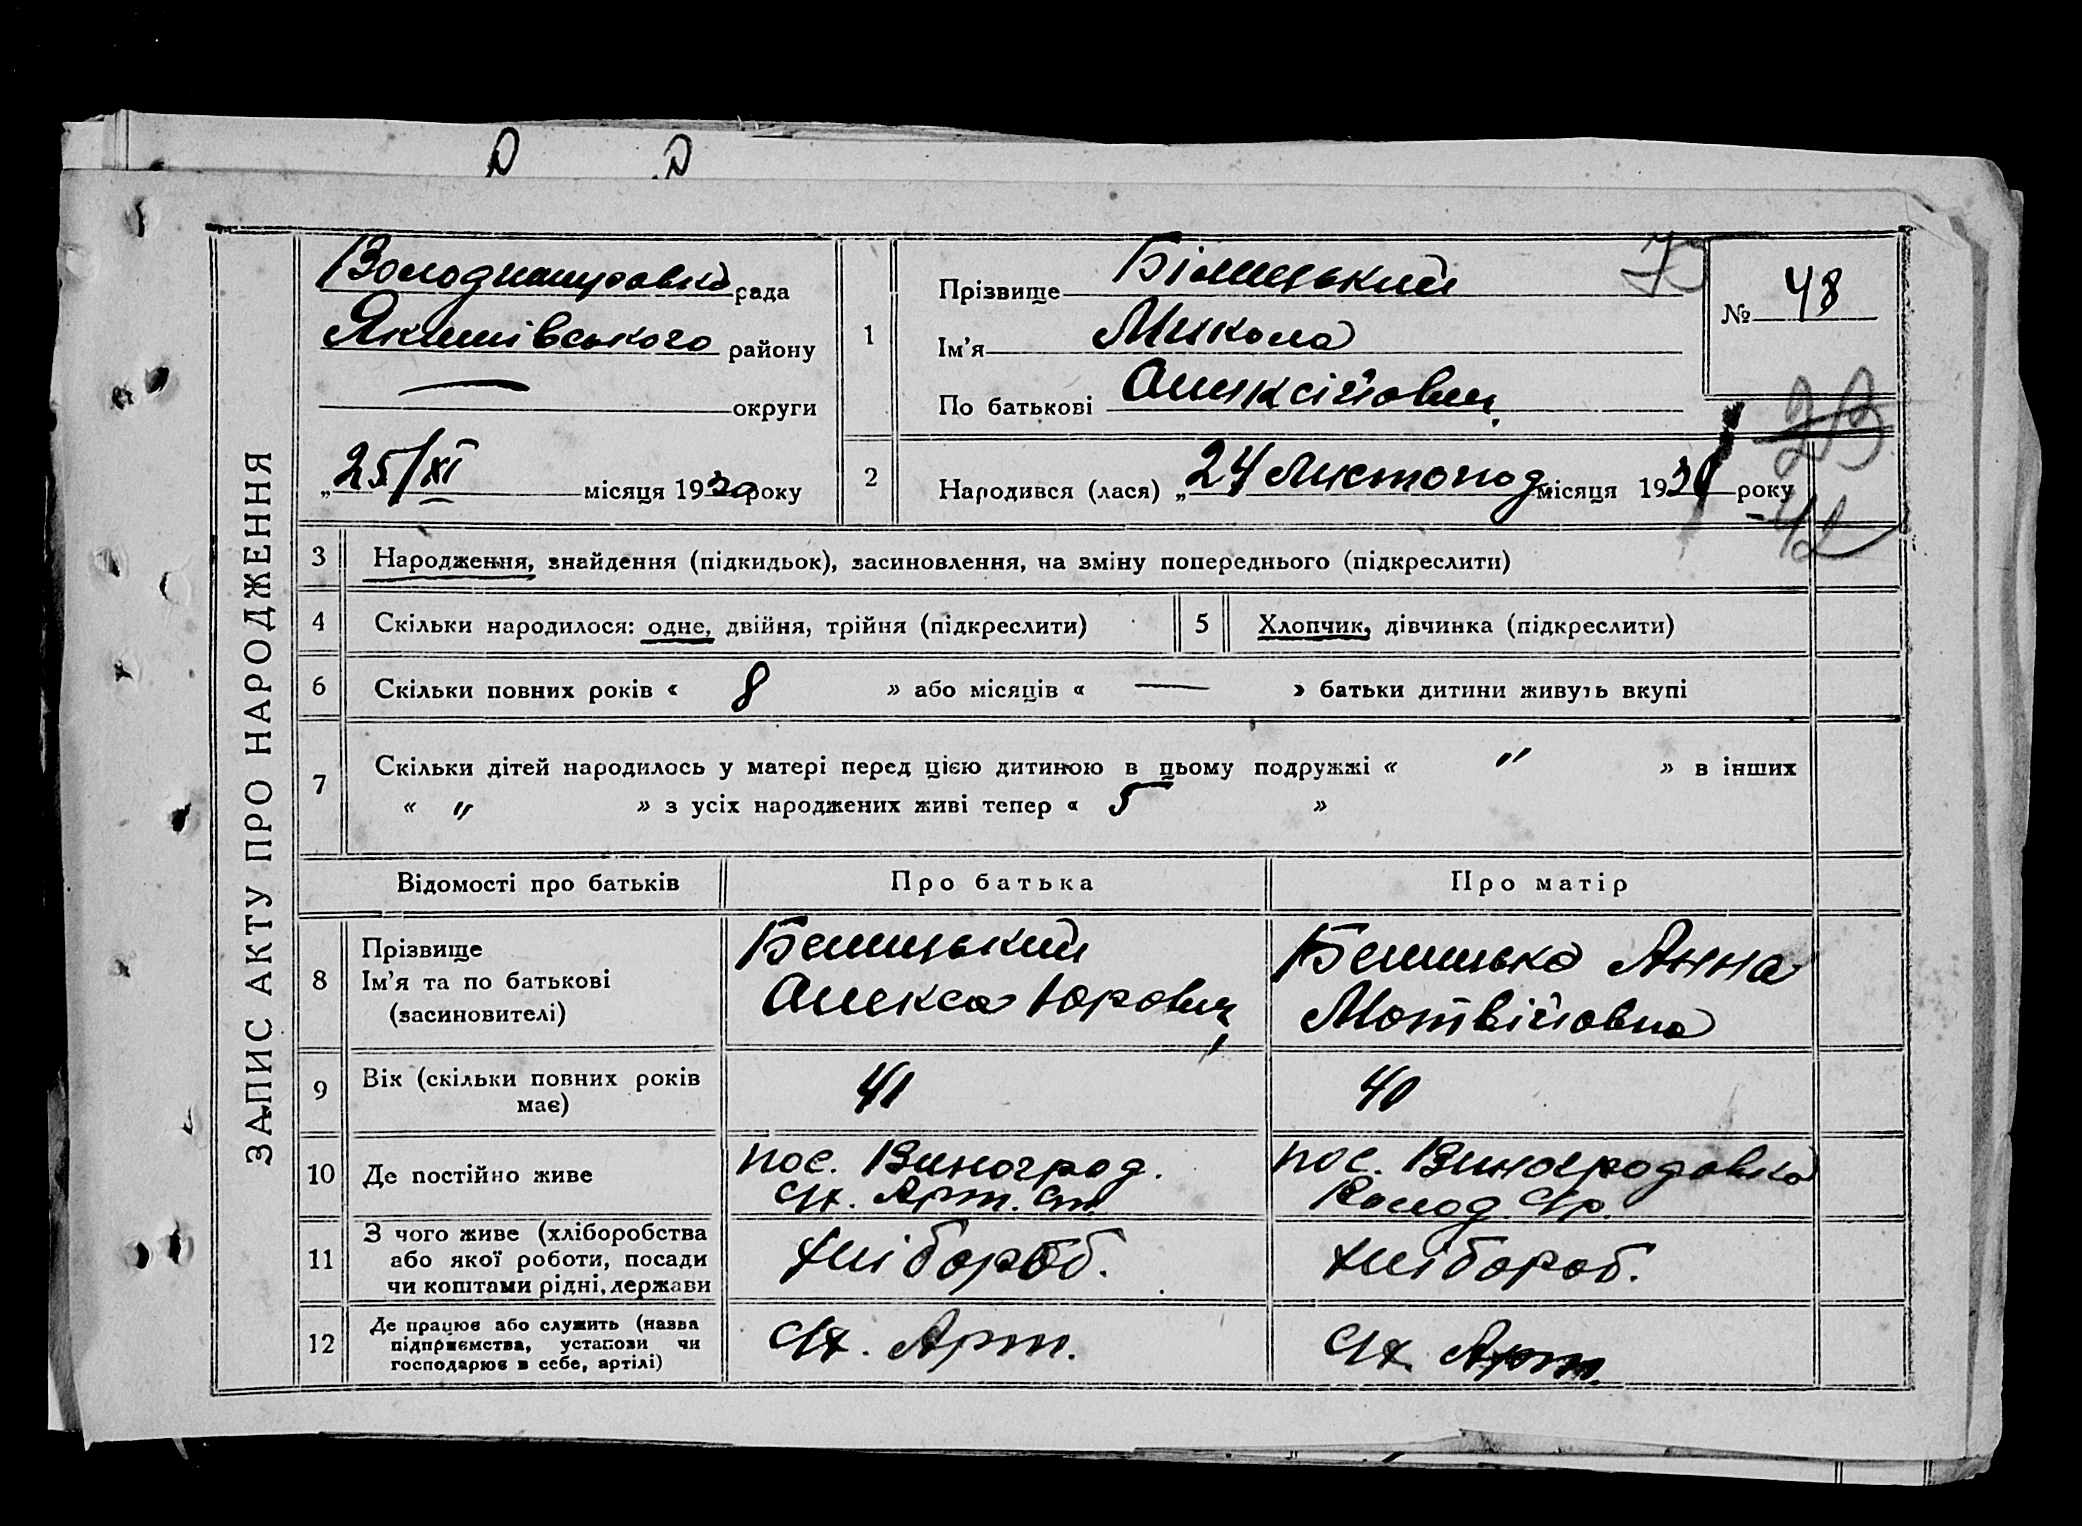 ЗАПИС АКТУ ПРО НАРОДЖЕННЯ
рада
Якимівського району
округи
„25/XI місяця 1930 року
1
Прізвище Білицький
Ім'я Микола
По батькові Оликсійович
№ 48
73
23
-42
2
Народився (лася) „24 Листопад місяця 193 року
3 Народження, знайдення (підкидьок), засиновлення, на зміну попереднього (підкреслити)
4 Скільки народилося: одне, двійня, трійня (підкреслити)
5 Хлопчик, дівчинка (підкреслити)
6 Скільки повних років « 8 » або місяців « — » батьки дитини живуть вкупі
7 Скільки дітей народилось у матері перед цією дитиною в цьому подружжі « " » в інших
« " » з усіх народжених живі тепер « 5 »
Відомості про батьків
Про батька
Про матір
8 Прізвище
Ім'я та по батькові
(засиновителі)
Белицький
Олекса Юрович
Белицька Анна
Мотвійовна
9 Вік (скільки повних років
має)
41
40
10 Де постійно живе
пос. Виноград.
Арт.
пос. Виноградовка
11 З чого живе (хліборобства
або якої роботи, посади
чи коштами рідні, держави
хлібороб.
хлібороб.
12 Де працює або служить (назва
підприємства, установи чи
господарює в себе, артілі)
Арт.
Арт.